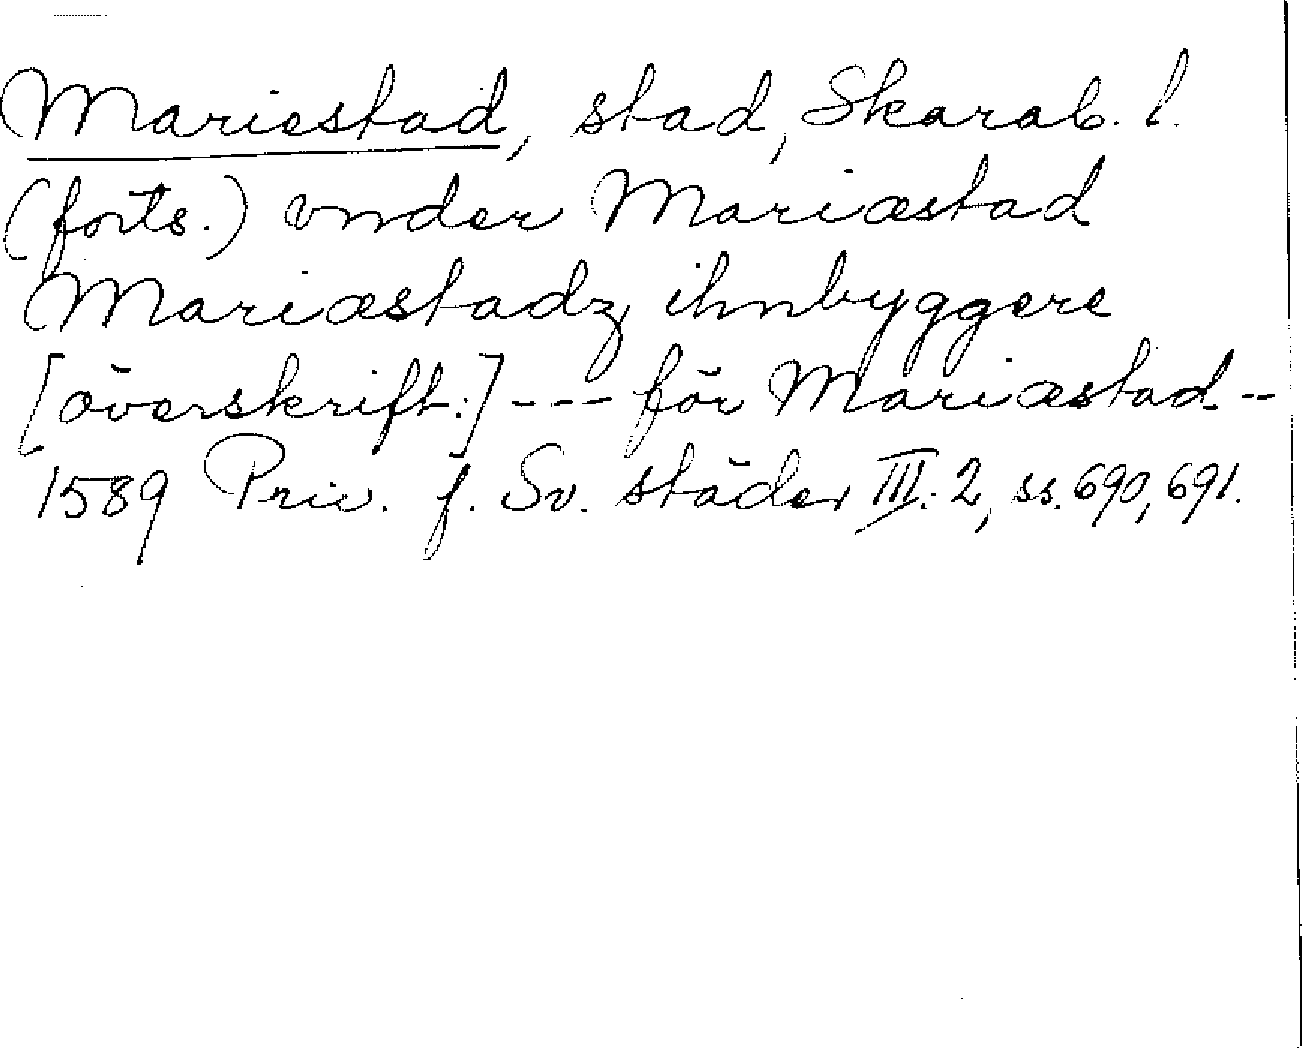 Mariestad, stad, Skarab. l.
(forts.) vnder Mariæstad
Mariæstadz ihnbyggere
[överskrift:] --- för Mariæstad --
1589 Priv. f. Sv. städer III: 2, ss. 690, 691.